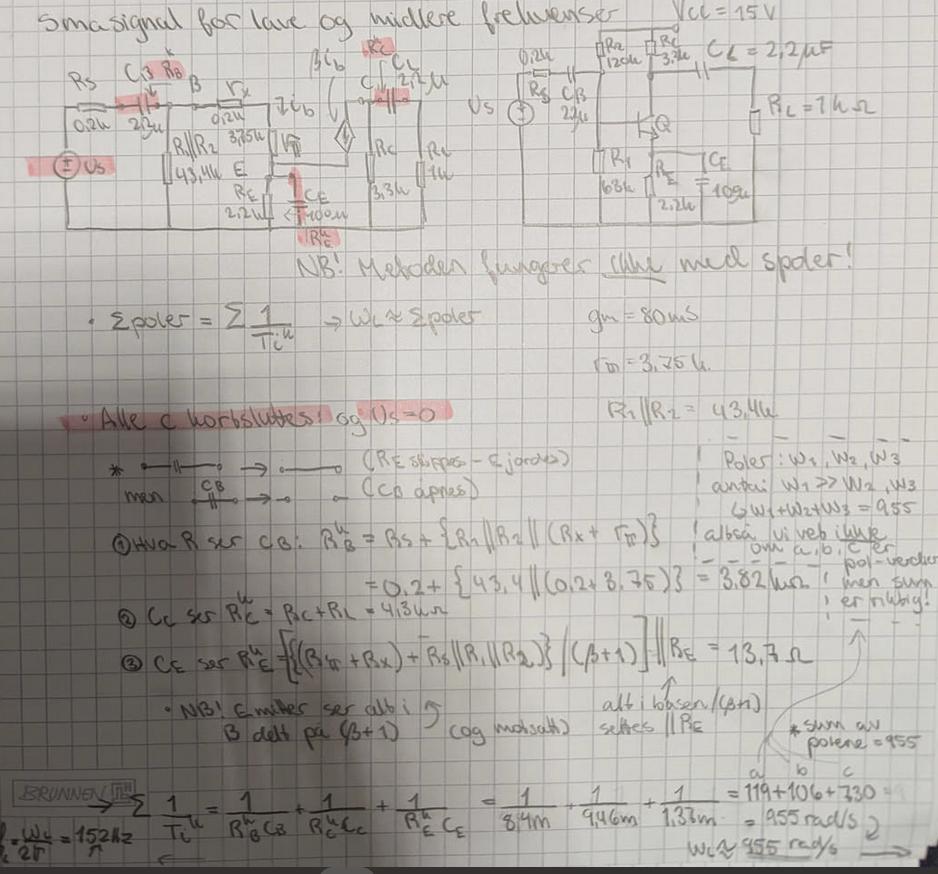 Småsignal for lave og midlere frekvenser
Vcc = 15V
Rs
CB
RB^u
B
rx
βib
Rc^u
CL
Cc
2,2μ
0,2k
2,2μ
0,2k
ib
Us
R1||R2
43,4k
3,75k
rπ
E
RE
2,2k
CE
100μ
RE^u
Rc
3,3k
RL
1k
0,2k
Rs
CB
2,2μ
Us
R2
120k
Rc
3,3k
CL = 2,2μF
RL = 1kΩ
Q
R1
68k
RE
2,2k
CE
100μ
NB! Metoden fungerer ikke med spoler!
· Σpoler = Σ 1/Ti^u → WL ≈ Σpoler
gm = 80mS
rπ = 3,75k
· Alle C kortsluttes og Us=0
R1||R2 = 43,4k
* (RE slippes - E jordes)
men CB (CB åpnes)
Poler: W1, W2, W3
antar W1 >> W2, W3
↳ W1+W2+W3 = 955
altså vi vet ikke
om a, b, c er
pol-verdier
men sum
er riktig!
① Hva R ser CB: RB^u = Rs + {R1||R2||(Rx + rπ)}
= 0,2 + {43,4||(0,2+3,75)} = 3,82kΩ
② Cc ser Rc^u = Rc + RL = 4,3kΩ
③ CE ser RE^u = [{(Rπ + Rx) + Rs||R1||R2}/(β+1)]||RE = 13,7Ω
· NB! Emitter ser alt i
B delt på (β+1)
(og motsatt)
alt i basen/(β+1)
settes ||RE
* sum av
polene = 955
a b c
BRUNNEN
Σ 1/Ti^u = 1/(RB^u CB) + 1/(Rc^u Cc) + 1/(RE^u CE) = 1/8,4m + 1/9,46m + 1/1,37m = 119+106+730
= 955 rad/s
WL/2π = 152Hz
WL ≈ 955 rad/s